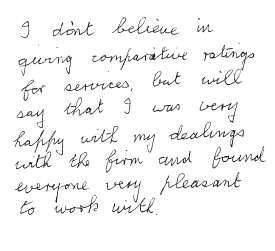 I dont believe in
giving comparative ratings
for services, but will
say that I was very
happy with my dealings
with the firm and found
everyone very pleasant
to work with.